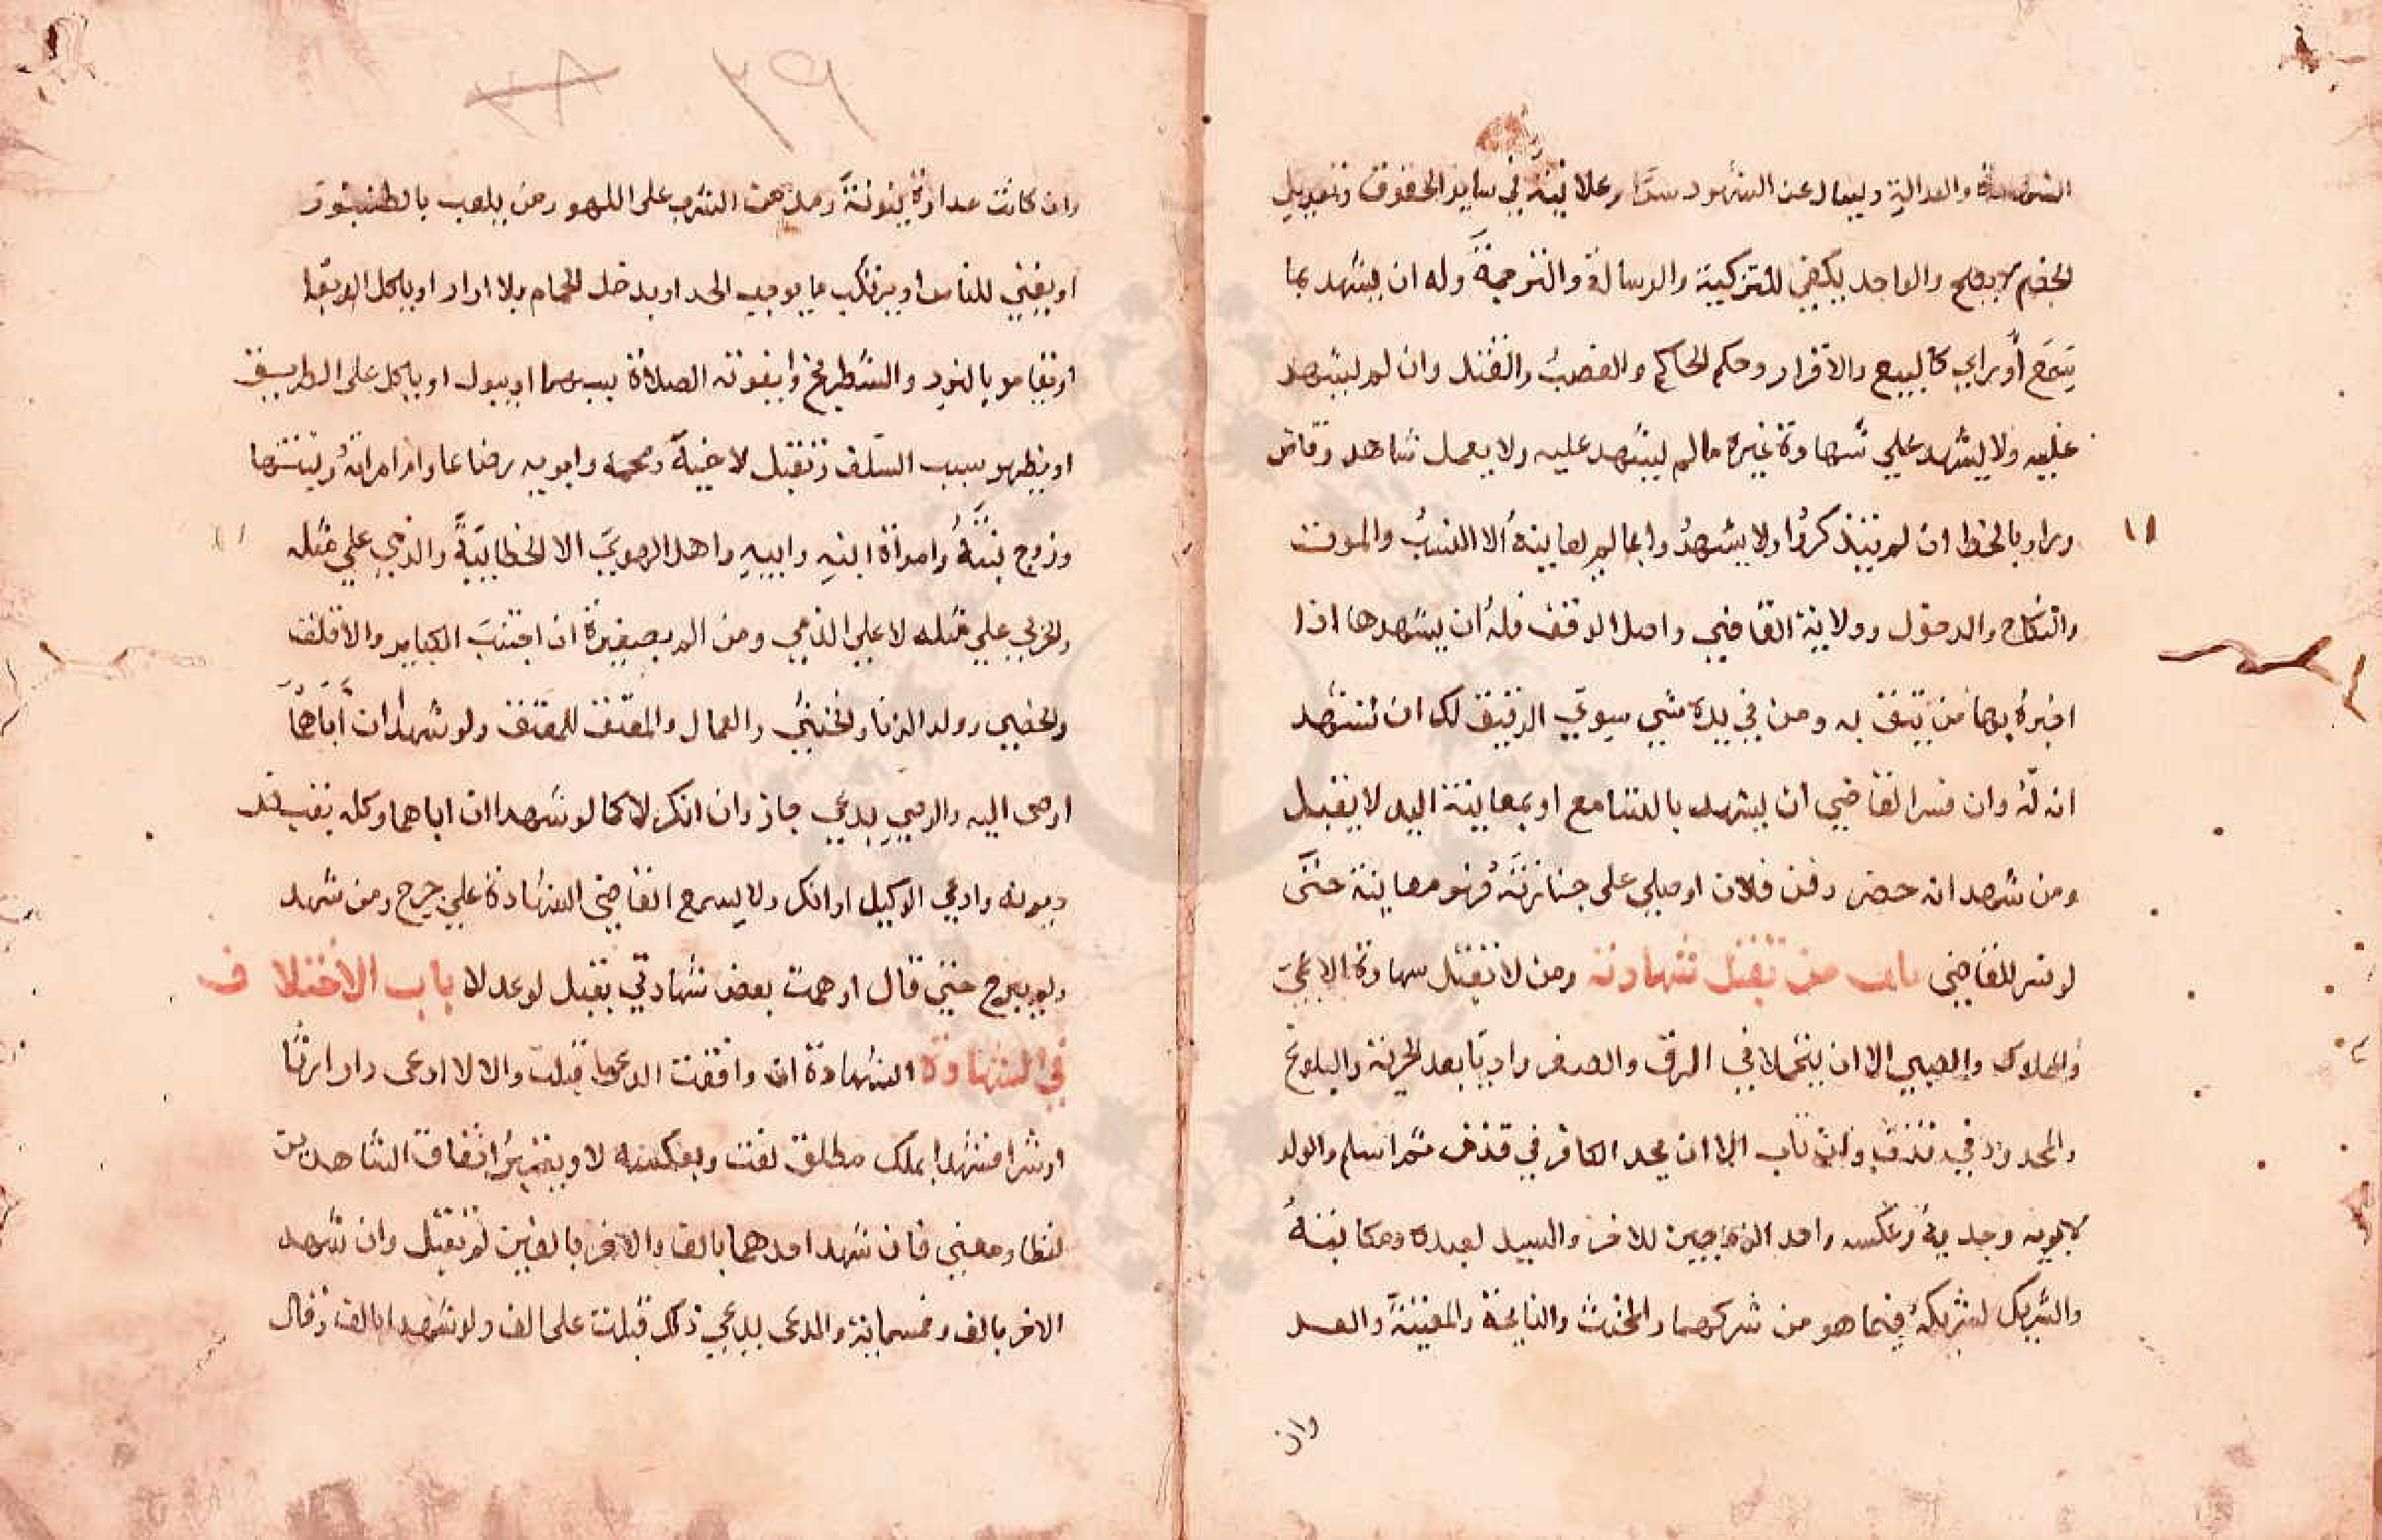 الشهادة والعدالة ويسال عن الشهود سرا وعلانية في ساير الحقوق وتعديل
الخصم لا يصح والواحد يكفي للتزكية والرسالة والترجمة وله ان يشهد بما
يسمع أو يراي كالبيع والاقرار وحكم الحاكم والغصب والقتل وان لم يشهد
عليه ولا يشهد على شهادة غيره مالم يشهد عليه ولا يعمل شاهد وقاض
وراو بالخط ان لم يتذكروا ولا يشهد وابما لم يعاينه الا النسب والموت
والنكاح والدخول وولاية القاضي واصل الوقف فله ان يشهدها اذا
اخبره بها من يثق به ومن في يده شي سوي الرقيق لك ان تشهد
انه له وان فسر القاضي ان يشهد بالتسامع او بمعاينة اليد لا يقبل
ومن شهد انه حضر دفن فلان او صلي على جنازته فهو معاينة حتى
لو فسر للقاضي باب من تقبل شهادته ومن لا تقبل شهادة الاعمي
والمملوك والصبي الا ان يتحملا في الرق والصغر واديا بعد الحرية والبلوغ
والمحدود في قذف وان تاب الا ان يحد الكافر في قذف ثم اسلم والولد
لابويه وجديه وعكسه واحد الزوجين للاخر والسيد لعبده ومكاتبه
والشريك لشريكه فيما هو من شركهما والمخنث والنايحة والمغنية والعد
وان
٢٩
٢٨
وان كانت عداوة دينونة ومدمن الشرب على اللهو ومن يلعب بالطنبور
او يغني للناس او يرتكب ما يوجب الحد او يدخل الحمام بلا ازار او ياكل الربا
او يقامر بالنرد والشطرنج وايفوته الصلاة بسببهما او يبول او ياكل على الطريق
او يظهر سبب السلف وتقبل لاخيه وعمه وابويه رضاعا وام امراته وبنتها
وزوج بنته وامراة ابنه وابيه واهل الهوي الا الخطابية والذمي علي مثله
والحربي علي مثله لا علي الذمي ومن الم بصغيرة ان اجتنب الكباير والاقلف
والخصي وولد الزنا والخنثي والعمال والمعتق للمعتق ولو شهدا ان أباهما
اوصى اليه والوصي يدعي جاز وان انكر لا كما لو شهدا ان اباهما وكله بقبض
ديونه وادعي الوكيل او انكر ولا يسمع القاضي الشهادة علي جرح ومن شهد
ولم يبرح حتي قال اوهمت بعض شهادتي تقبل لو عدلا باب الاختلاف
في الشهادة الشهادة ان وافقت الدعوى قبلت والا لا ادعى دار ارثا
او شرا فشهدا بملك مطلق لغت وبعكسه لا ويعتبر اتفاق الشاهدين
لفظا ومعني فان شهد احدهما بالف والاخر بالفين لم تقبل وان شهد
الاخر بالف وخمسماية والمدعى يدعي ذلك قبلت على الف ولو شهدا بالف وقال